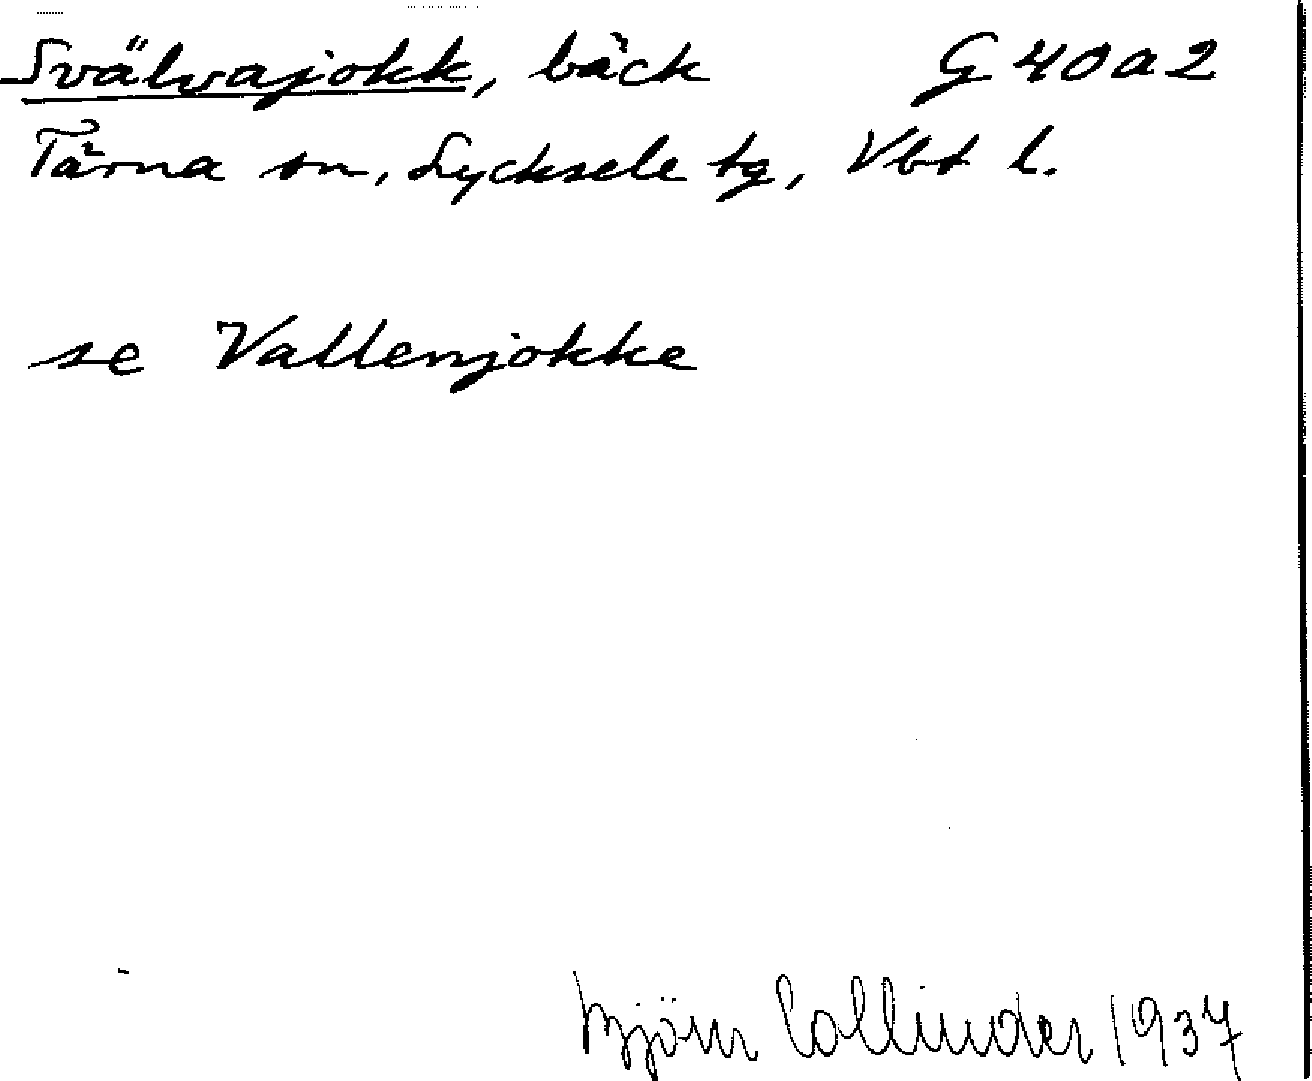 Svälvajokk, bäck G 40 a 2
Tärna sn, Lycksele tg, Vbt l.
se Vallenjokke
Björn Collinder 1937